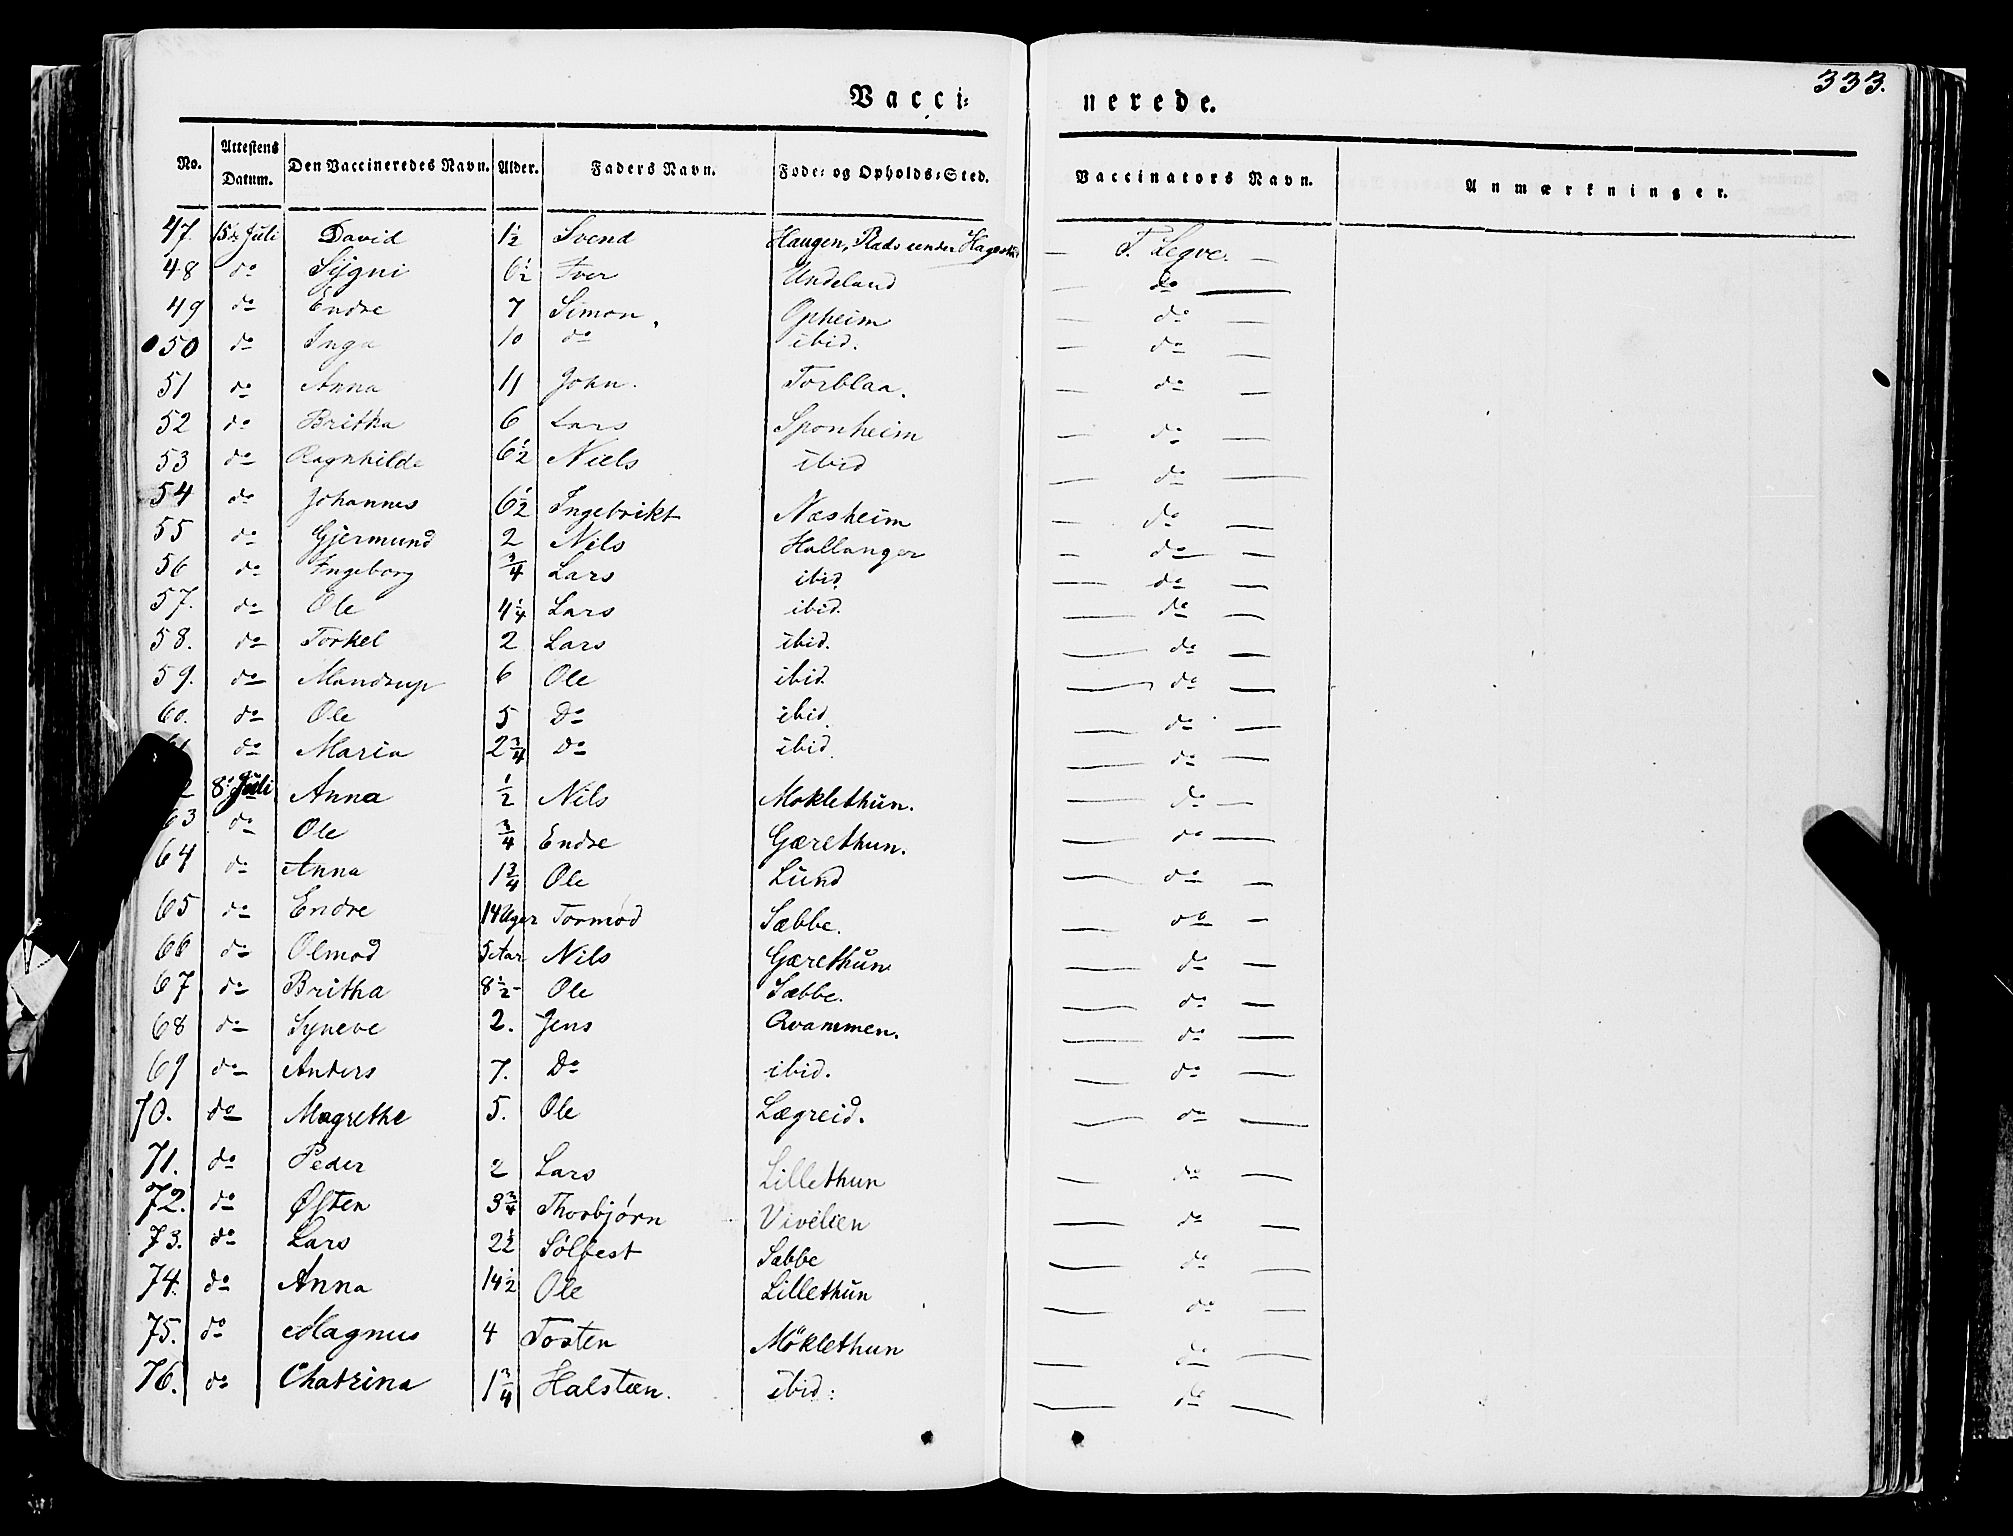 333.
Vacci: nerede.
No. Attestens Datum. Den Vaccineredes Navn. Alder. Faders Navn. Føde: og Opholds: Sted. Vaccinators Navn. Anmærkninger.
47. 15de Juli David 1½ Svend Haugen, Plads under T. Legve. —
48 do Sygni 6½ Iver Undeland — do —
49 do Endre 7 Simon. Opheim — do —
50 do Inga 10 do ibid. — do —
51 do Anna 11 John. Torblaa. — do —
52 do Britha 6 Lars Sponheim — do —
53 do Ragnhilde 6½ Niels ibid — do —
54 do Johannes 6½ Ingebrikt Næsheim — do —
55 do Gjermund 2 Nils Hallanger — do —
56 do Ingeborg ¾ Lars ibid — do —
57. do Ole 4¼ Lars ibid. — do —
58. do Torkel 2 Lars ibid. — do —
59. do Mandrup 6 Ole ibid. — do —
60. do Ole 5 Do ibid. — do —
do Maria 2¾ Do ibid. — do —
8de Juli Anna ½ Nils Moklethun. — do —
63 do Ole ¾ Endre Gærethun. — do —
64 do Anna 1¾ Ole Lund — do —
65 do Endre 14 Uger Tormod Sæbbe. — do —
66 do Olmod 5 Aar Nils Gærethun — do —
67 do Britha 8½ Ole Sæbbe. — do —
68 do Syneve 2. Jens Qvammen. — do —
69 do Anders 7. Do ibid. — do —
70. do Magrethe 5. Ole Lægreid. — do —
71. do Peder 2 Lars Lillethun — do —
72. do Østen 3¾ Thorbjørn Vivelien — do —
73. do Lars 2½ Sølfest Sæbbe — do —
74. do Anna 14½ Ole Lillethun — do —
75. do Magnus 4 Tosten Møklethun — do —
76. do Chatrina 1¾ Halsteen. ibid: — do —